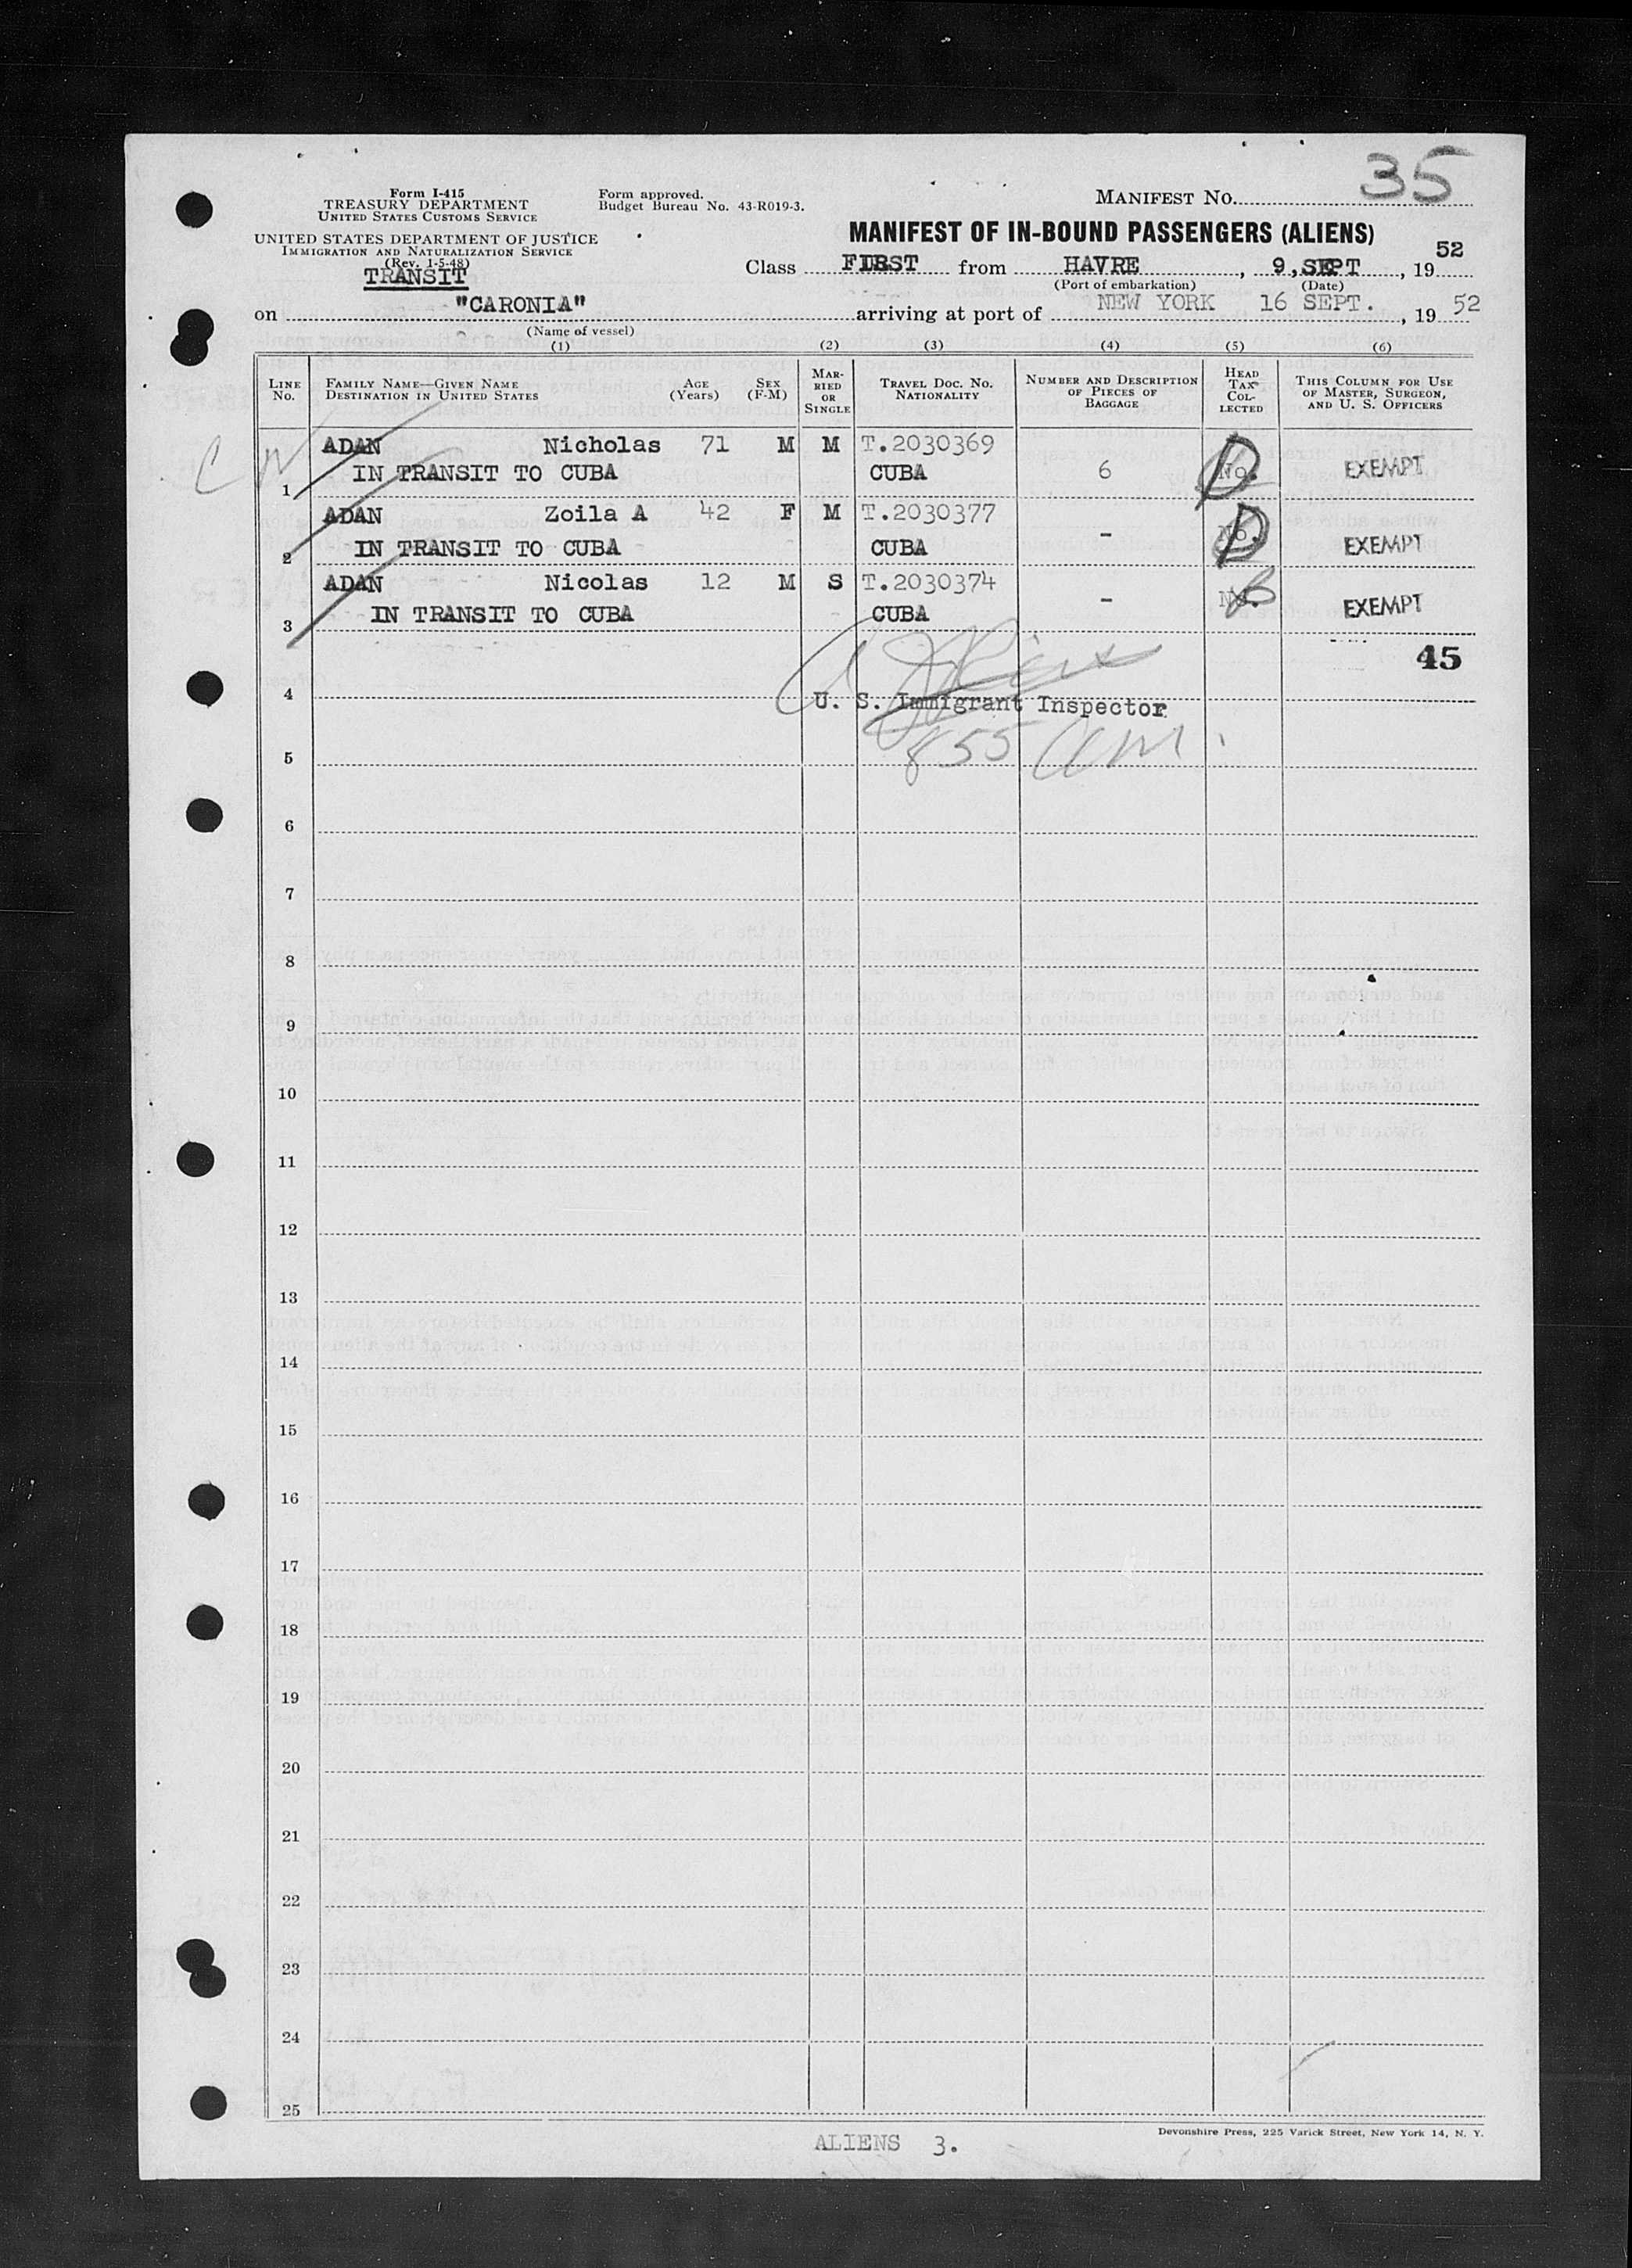 35
Form I-415
TREASURY DEPARTMENT
UNITED STATES CUSTOMS SERVICE
Form approved.
Budget Bureau No. 43-R019-3.
MANIFEST NO.
UNITED STATES DEPARTMENT OF JUSTICE
IMMIGRATION AND NATURALIZATION SERVICE
(Rev. 1-5-48)
TRANSIT
MANIFEST OF IN-BOUND PASSENGERS (ALIENS)
Class FIRST from HAVRE, 9, SEPT, 19 52
(Port of embarkation) (Date)
on "CARONIA" arriving at port of NEW YORK 16 SEPT., 19 52
(Name of vessel)
(1) (2) (3) (4) (5) (6)
LINE No. FAMILY NAME—GIVEN NAME DESTINATION IN UNITED STATES AGE (Years) SEX (F-M) MARRIED OR SINGLE TRAVEL DOC. NO. NATIONALITY NUMBER AND DESCRIPTION OF PIECES OF BAGGAGE HEAD TAX COLLECTED THIS COLUMN FOR USE OF MASTER, SURGEON, AND U. S. OFFICERS
ADAN Nicholas 71 M M T.2030369
1 IN TRANSIT TO CUBA CUBA 6 No. EXEMPT
ADAN Zoila A 42 F M T.2030377
2 IN TRANSIT TO CUBA CUBA - No. EXEMPT
ADAN Nicolas 12 M S T.2030374
3 IN TRANSIT TO CUBA CUBA - No. EXEMPT
45
4 U. S. Immigrant Inspector
5 855 am.
6
7
8
9
10
11
12
13
14
15
16
17
18
19
20
21
22
23
24
25
Devonshire Press, 225 Varick Street, New York 14, N. Y.
ALIENS 3.